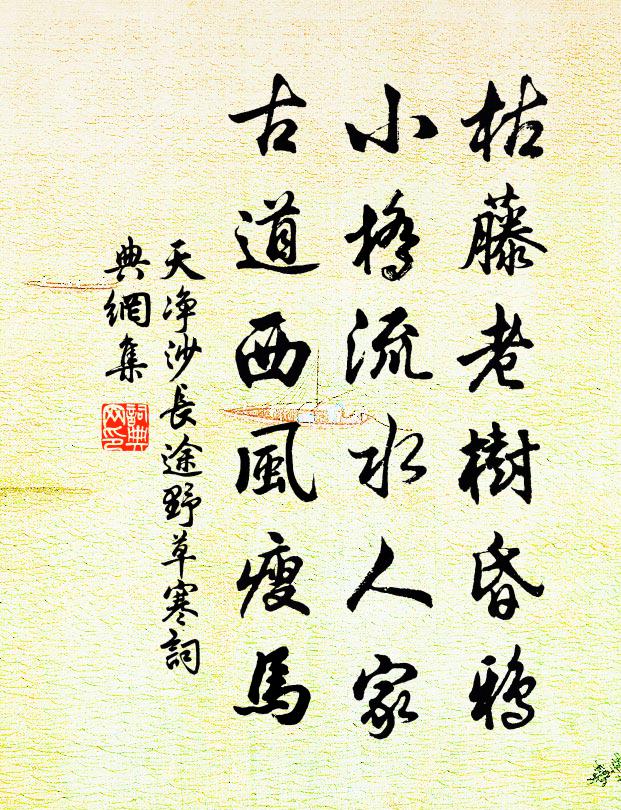 枯藤老樹昏鴉
小橋流水人家
古道西風瘦馬
天净沙長途野草寒詞
典網集
詞典
网印